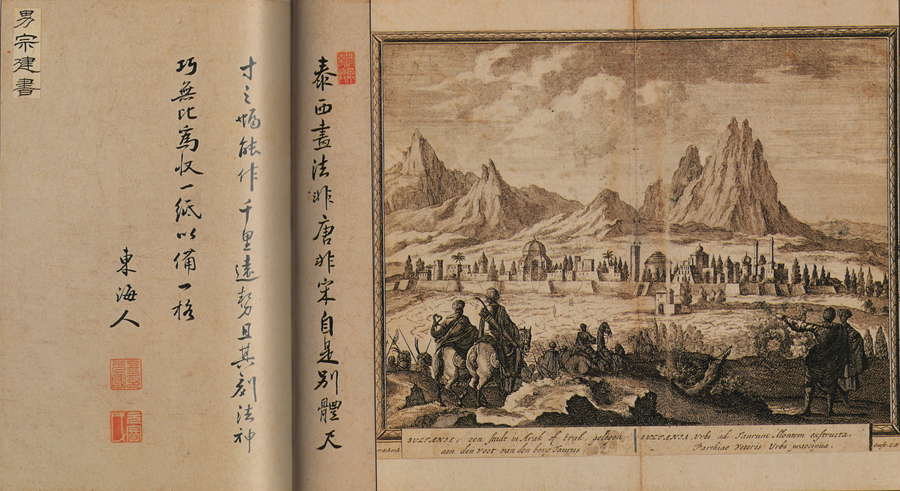 泰西畫法非唐非宋自是別體尺
寸之幅能作千里遠勢且其刻法神
巧無比爲收一紙以備一格
東海人
男宗建書
SULTANIE, een stadt in Arak of Erak, gelegen
aen den voet van den berg Taurus.
SULTANIA, Urbs ad Taurum Montem exstructa,
Parthiae Veteris Urbs praecipua.